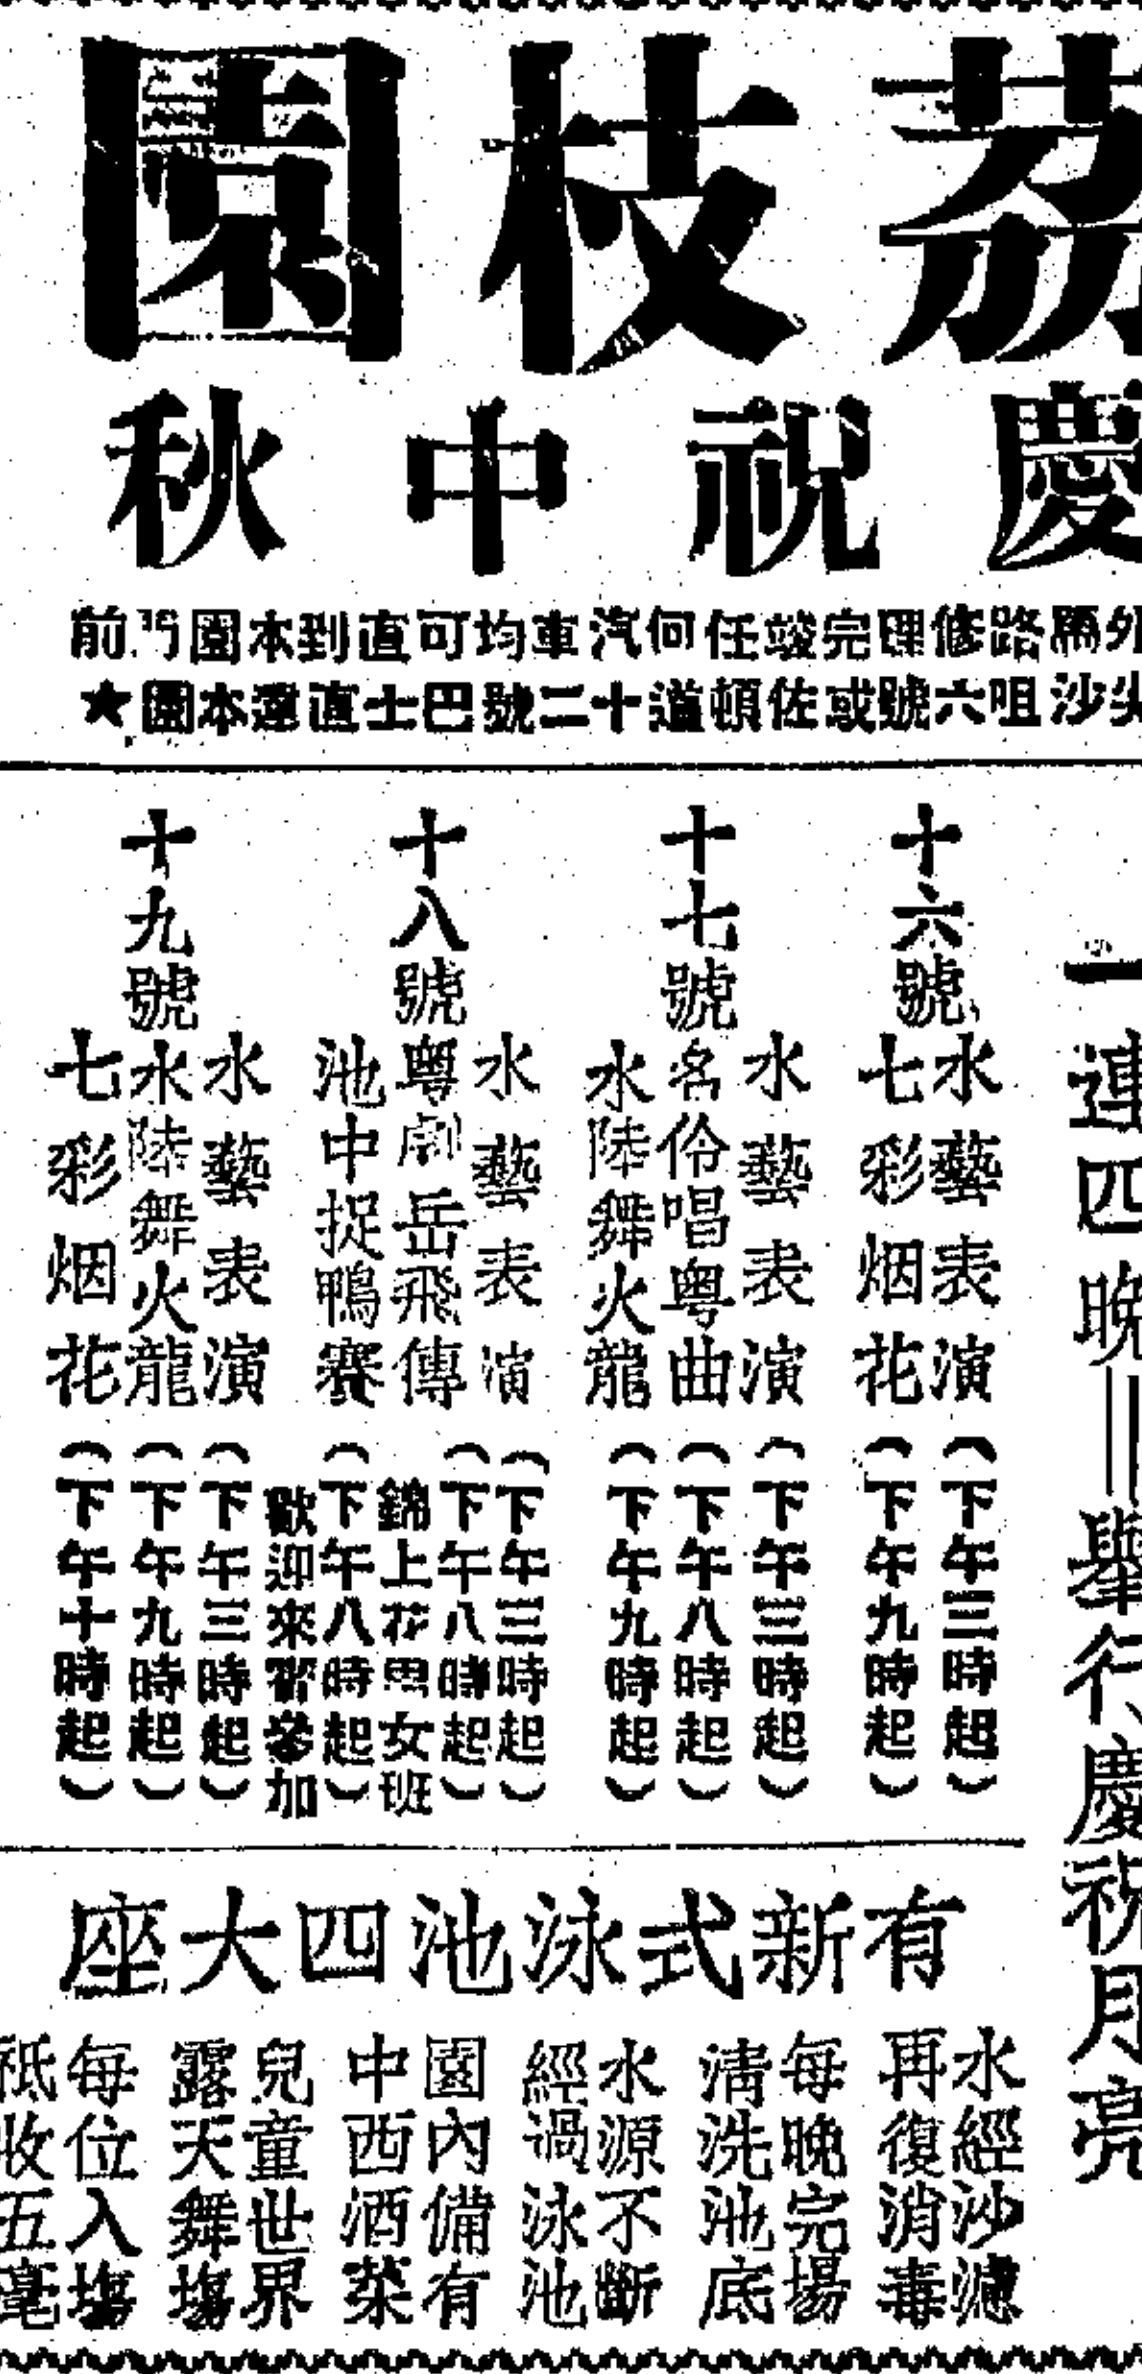 荔枝園
慶祝中秋
外馬路修理完竣任何汽車均可直到本園門前
尖沙咀六號或佐頓道十二號巴士直達本園★
一連四晚＝舉行慶祝月亮
十六號
水藝表演（下午三時起）
七彩烟花（下午九時起）
十七號
水藝表演（下午三時起）
名伶唱粵曲（下午八時起）
水陸舞火龍（下午九時起）
十八號
水藝表演（下午三時起）
粵劇岳飛傳（下午八時起）
錦上花男女班
池中捉鴨賽（下午八時起）
歡迎來賓參加
十九號
水藝表演（下午三時起）
水陸舞火龍（下午九時起）
七彩烟花（下午十時起）
有新式泳池四大座
水經沙濾
再復消毒
每晚完場
清洗池底
水源不斷
經過泳池
園內備有
中西酒菜
兒童世界
露天舞場
每位入場
祗收五毫